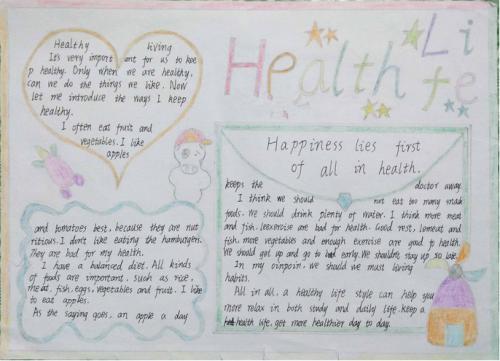 Health Life
Healthy living
It's very import ant for us to kee
p healthy. Only when we are healthy,
can we do the things we like. Now
let me introduce the ways I keep
healthy.
I often eat fruit and
vegetables. I like
apples
and tomatoes best, because they are nut
ritious. I don't like eating the hamburgers.
They are bad for my health.
I have a balanced diet. All kinds
of foods are important, such as rice,
meat, fish, eggs, vegetables and fruit. I like
to eat apples.
As the saying goes, an apple a day
Happiness lies first
of all in health.
keeps the doctor away.
I think we should not eat too many snack
foods. We should drink plenty of water. I think more meat
and fish, lexexercise are bad for health. Good rest, lemeat and
fish, more vegetables and enough exercise are good to health.
We should get up and go to bed early. We shouldn't stay up so late.
In my oinpoin, we should we must living
habits.
All in all, a healthy life style can help you
more relax in both study and daily life. keep a
health life, get more healthier day to day.